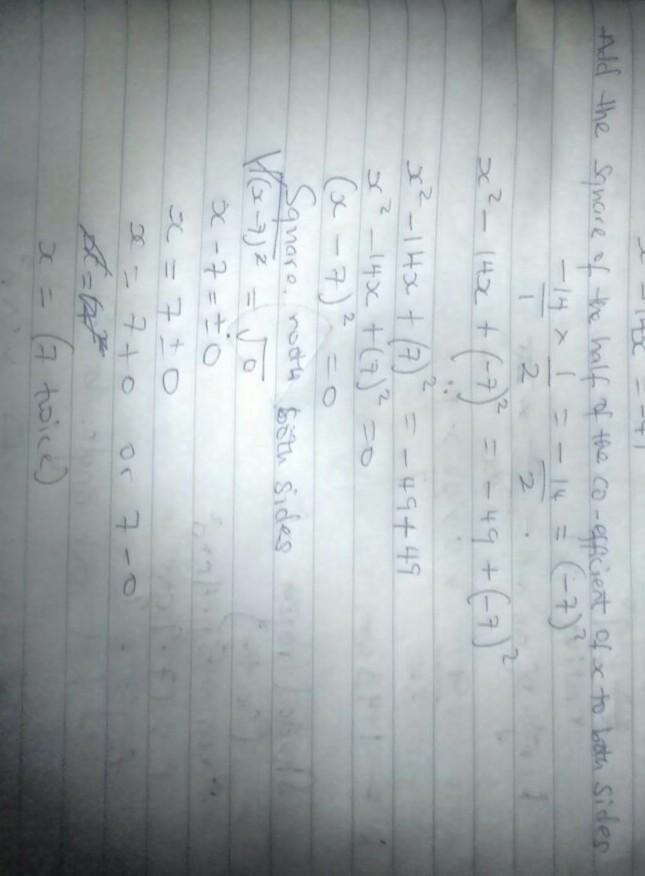 x² - 14x = -49
Add the square of the half of the co-efficient of x to both sides
-14/1 × 1/2 = -14/2 = (-7)²
x² - 14x + (-7)² = -49 + (-7)²
x² - 14x + (7)² = -49 + 49
x² - 14x + (7)² = 0
(x - 7)² = 0
Square roots both sides
√(x-7)² = √0
x - 7 = ±0
x = 7 ± 0
x = 7 + 0 or 7 - 0
x = (7 twice)